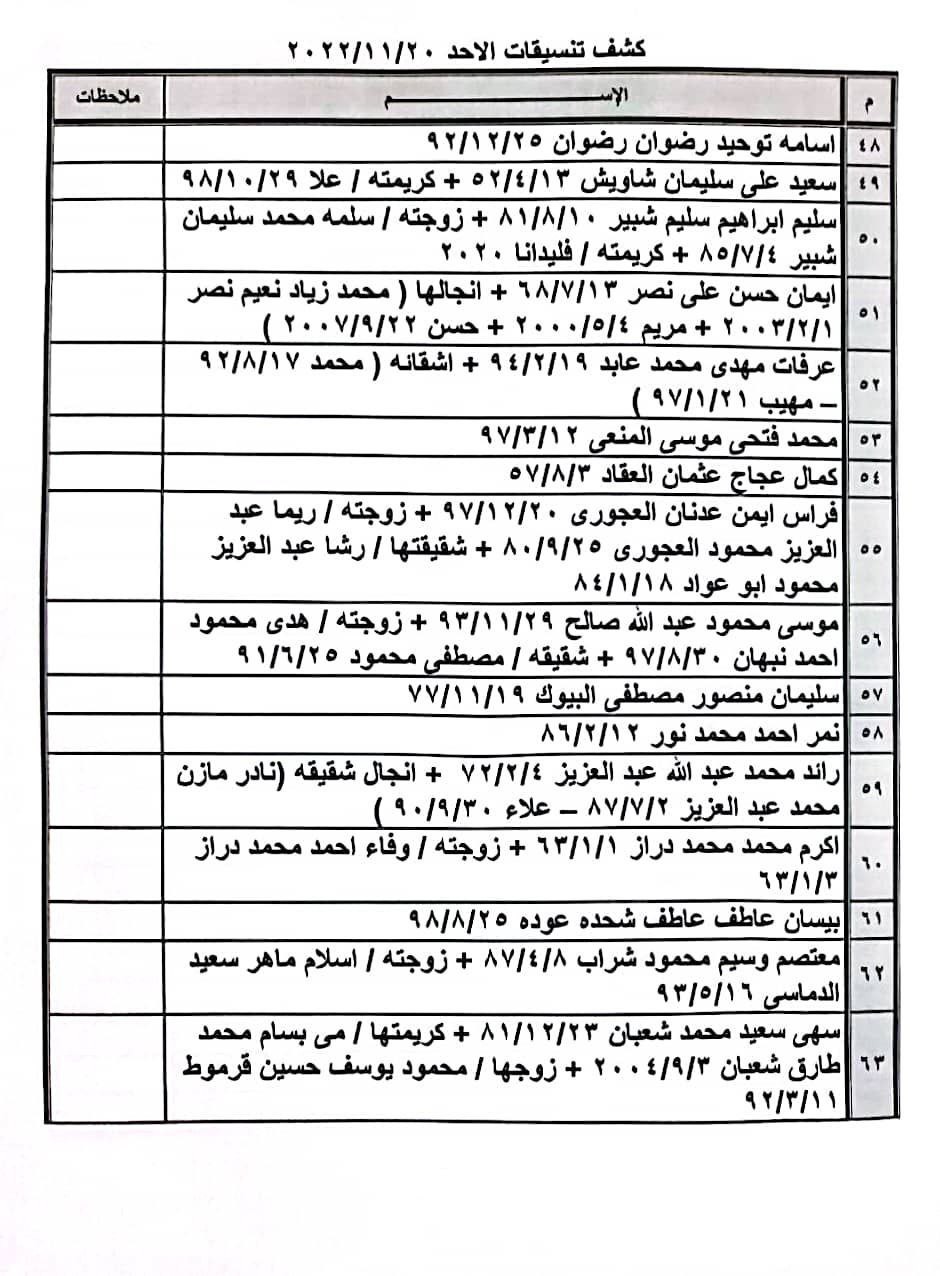 كشف تنسيقات الاحد ٢٠٢٢/١١/٢٠
م الإســـــــــــــــم ملاحظات
٤٨ اسامه توحيد رضوان رضوان ٩٢/١٢/٢٥
٤٩ سعيد على سليمان شاويش ٥٢/٤/١٣ + كريمته / علا ٩٨/١٠/٢٩
٥٠ سليم ابراهيم سليم شبير ٨١/٨/١٠ + زوجته / سلمه محمد سليمان
شبير ٨٥/٧/٤ + كريمته / فليدانا ٢٠٢٠
٥١ ايمان حسن على نصر ٦٨/٧/١٣ + انجالها ( محمد زياد نعيم نصر
٢٠٠٣/٢/١ + مريم ٢٠٠٠/٥/٤ + حسن ٢٠٠٧/٩/٢٢ )
٥٢ عرفات مهدى محمد عابد ٩٤/٢/١٩ + اشقائه ( محمد ٩٢/٨/١٧
– مهيب ٩٧/١/٢١ )
٥٣ محمد فتحى موسى المنعى ٩٧/٣/١٢
٥٤ كمال عجاج عثمان العقاد ٥٧/٨/٣
٥٥ فراس ايمن عدنان العجورى ٩٧/١٢/٢٠ + زوجته / ريما عبد
العزيز محمود العجورى ٨٠/٩/٢٥ + شقيقتها / رشا عبد العزيز
محمود ابو عواد ٨٤/١/١٨
٥٦ موسى محمود عبد الله صالح ٩٣/١١/٢٩ + زوجته / هدى محمود
احمد نبهان ٩٧/٨/٣٠ + شقيقه / مصطفى محمود ٩١/٦/٢٥
٥٧ سليمان منصور مصطفى البيوك ٧٧/١١/١٩
٥٨ نمر احمد محمد نور ٨٦/٢/١٢
٥٩ رائد محمد عبد الله عبد العزيز ٧٢/٢/٤ + انجال شقيقه (نادر مازن
محمد عبد العزيز ٨٧/٧/٢ – علاء ٩٠/٩/٣٠ )
٦٠ اكرم محمد محمد دراز ٦٣/١/١ + زوجته / وفاء احمد محمد دراز
٦٣/١/٣
٦١ بيسان عاطف عاطف شحده عوده ٩٨/٨/٢٥
٦٢ معتصم وسيم محمود شراب ٨٧/٤/٨ + زوجته / اسلام ماهر سعيد
الدماسى ٩٣/٥/١٦
٦٣ سهى سعيد محمد شعبان ٨١/١٢/٢٣ + كريمتها / مى بسام محمد
طارق شعبان ٢٠٠٤/٩/٣ + زوجها / محمود يوسف حسين قرموط
٩٢/٣/١١